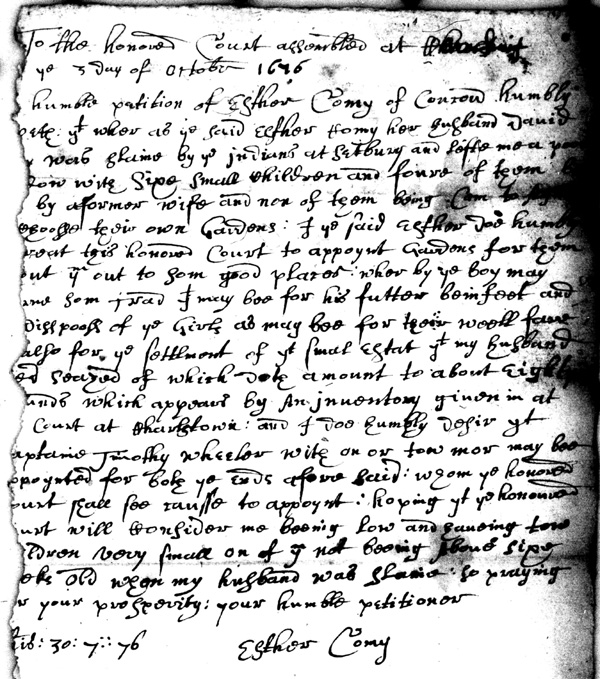 To the honored Court assembled at
ye 5 day of October 1676
humble petition of Esther Comy of Concord humbly
yt wher as ye said Esther Comy her husband David
was slaine by ye indians at Sutbury and lefte me a
with sixe small Children and foure of them
by a former wife and non of them being Com to
their own Gardens: I ye said Esther doe humbly
this honored Court to appoynt Gardens for them
put ym out to som good places: wher by ye boy may
som trad yt may bee for his futter beinfeet and
disposs of ye Girls as may bee for their well fare
also for ye settlment of yt smal Estat yt my husband
seazed of which doth amount to about Eighty
unds which appears by An inventory given in at
Court at Charlstown: and I doe humbly desir yt
aptaine Timothy Wheeler with on or tow mor may bee
ppoynted for both ye ends afore said: whom ye honored
ourt shall see causse to appoynt: hoping yt ye honoured
urt will Consider me beeing low and haueing tow
ildren very small on of ym not beeing above sixe
eks old when my husband was slaine: so praying
your prosperity: your humble petitioner
30: 7: 76 Esther Comy